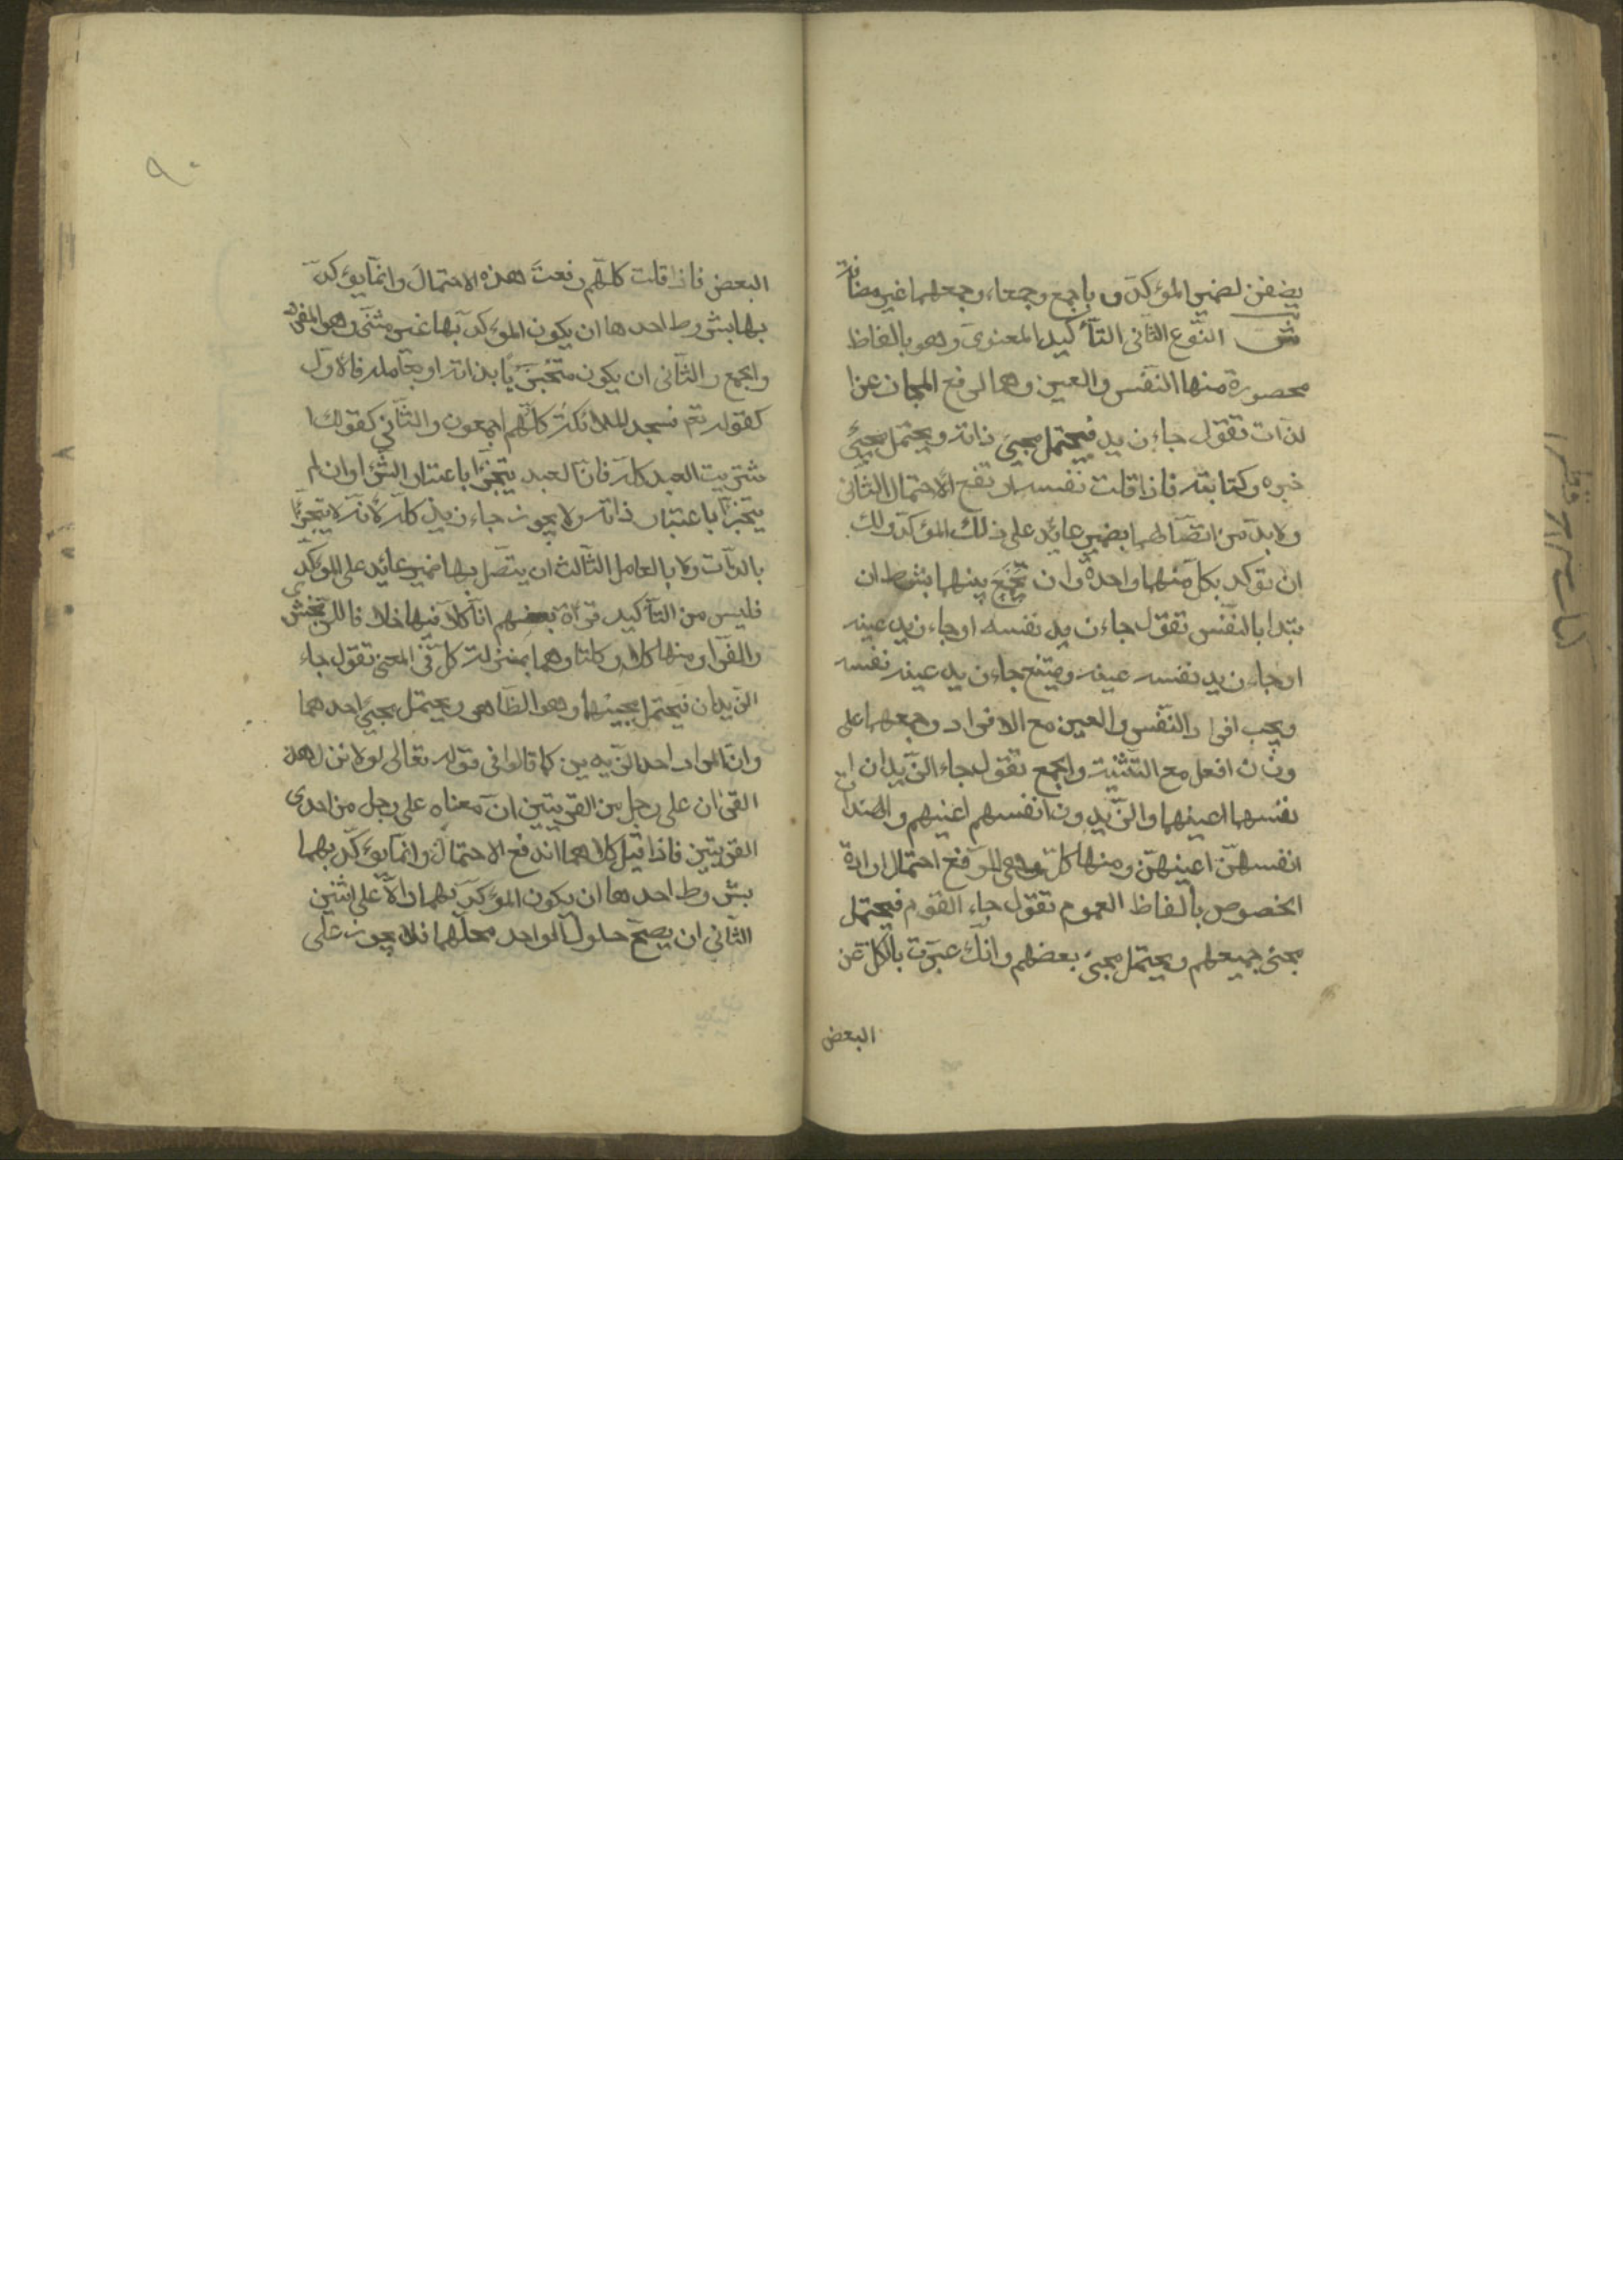 يضفن لضمير المؤكد و باجمع وجمعاء وجمعهما غير مضافة
ش النوع الثاني التأكيد المعنوي وهو بالفاظ
محصورة منها النفس والعين وهما لرفع المجاز عن ا
لذات تقول جاء زيد فيحتمل مجيئ ذاته ويحتمل مجيئ
خبره وكتابته فاذا قلت نفسه ارتفع الاحتمال الثاني
ولا بد من اتصالهما بضمير عايد على ذلك المؤكد ولك
ان تؤكد بكل منهما واحدة وان تجمع بينهما بشرط ان
تبدا بالنفس تقول جاء زيد نفسه او جاء زيد عينه
او جاء زيد نفسه عينه ويمتنع جاء زيد عينه نفسه
ويجب افراد النفس والعين مع الافراد وجمعهما على
وزن افعل مع التثنية والجمع تقول جاء الزيدان ا
نفسهما اعينهما والزيدون انفسهم اعينهم والهندات
انفسهن اعينهن ومنها كل وهي لرفع احتمال ارادة
الخصوص بالفاظ العموم تقول جاء القوم فيحتمل
مجئ جميعهم ويحتمل مجئ بعضهم وانك عبرت بالكل عن
البعض
٩٠
البعض فاذا قلت كلهم رفعت هذه الاحتمال وانما يؤكد
بها بشروط احدها ان يكون المؤكد بها غير مثنى وهو المفرد
والجمع والثاني ان يكون متجزئا بذاته او بعامله فالاول
كقوله تع فسجد للملائكة كلهم اجمعون والثاني كقولك ا
شتريت العبد كله فان العبد يتجزا باعتبار الشرا وان لم
يتجزا باعتبار ذاته ولا يجوز جاء زيد كله لانه لا يتجزا
بالذات ولا بالعامل الثالث ان يتصل بها ضمير عائد على المؤكد
فليس من التأكيد قراة بعضهم انا كلا فيها خلافا للزمخشرى
والفرا ومنها كلا وكلتا وهما بمنزلة كل في المعنى تقول جاء
الزيدان فيحتمل مجيئهما وهو الظاهر ويحتمل مجيئ احدهما
وان المراد احد الزيدين كما قالوا في قوله تعالى لولا نزل هذا
القرٰان على رجل من القريتين ان معناه على رجل من احدى
القريتين فاذا قيل كلاهما اندفع الاحتمال وانما يؤكد بهما
بشروط احدها ان يكون المؤكد بهما دالا على اثنين
الثاني ان يصح حلول الواحد محلهما فلا يجوز على